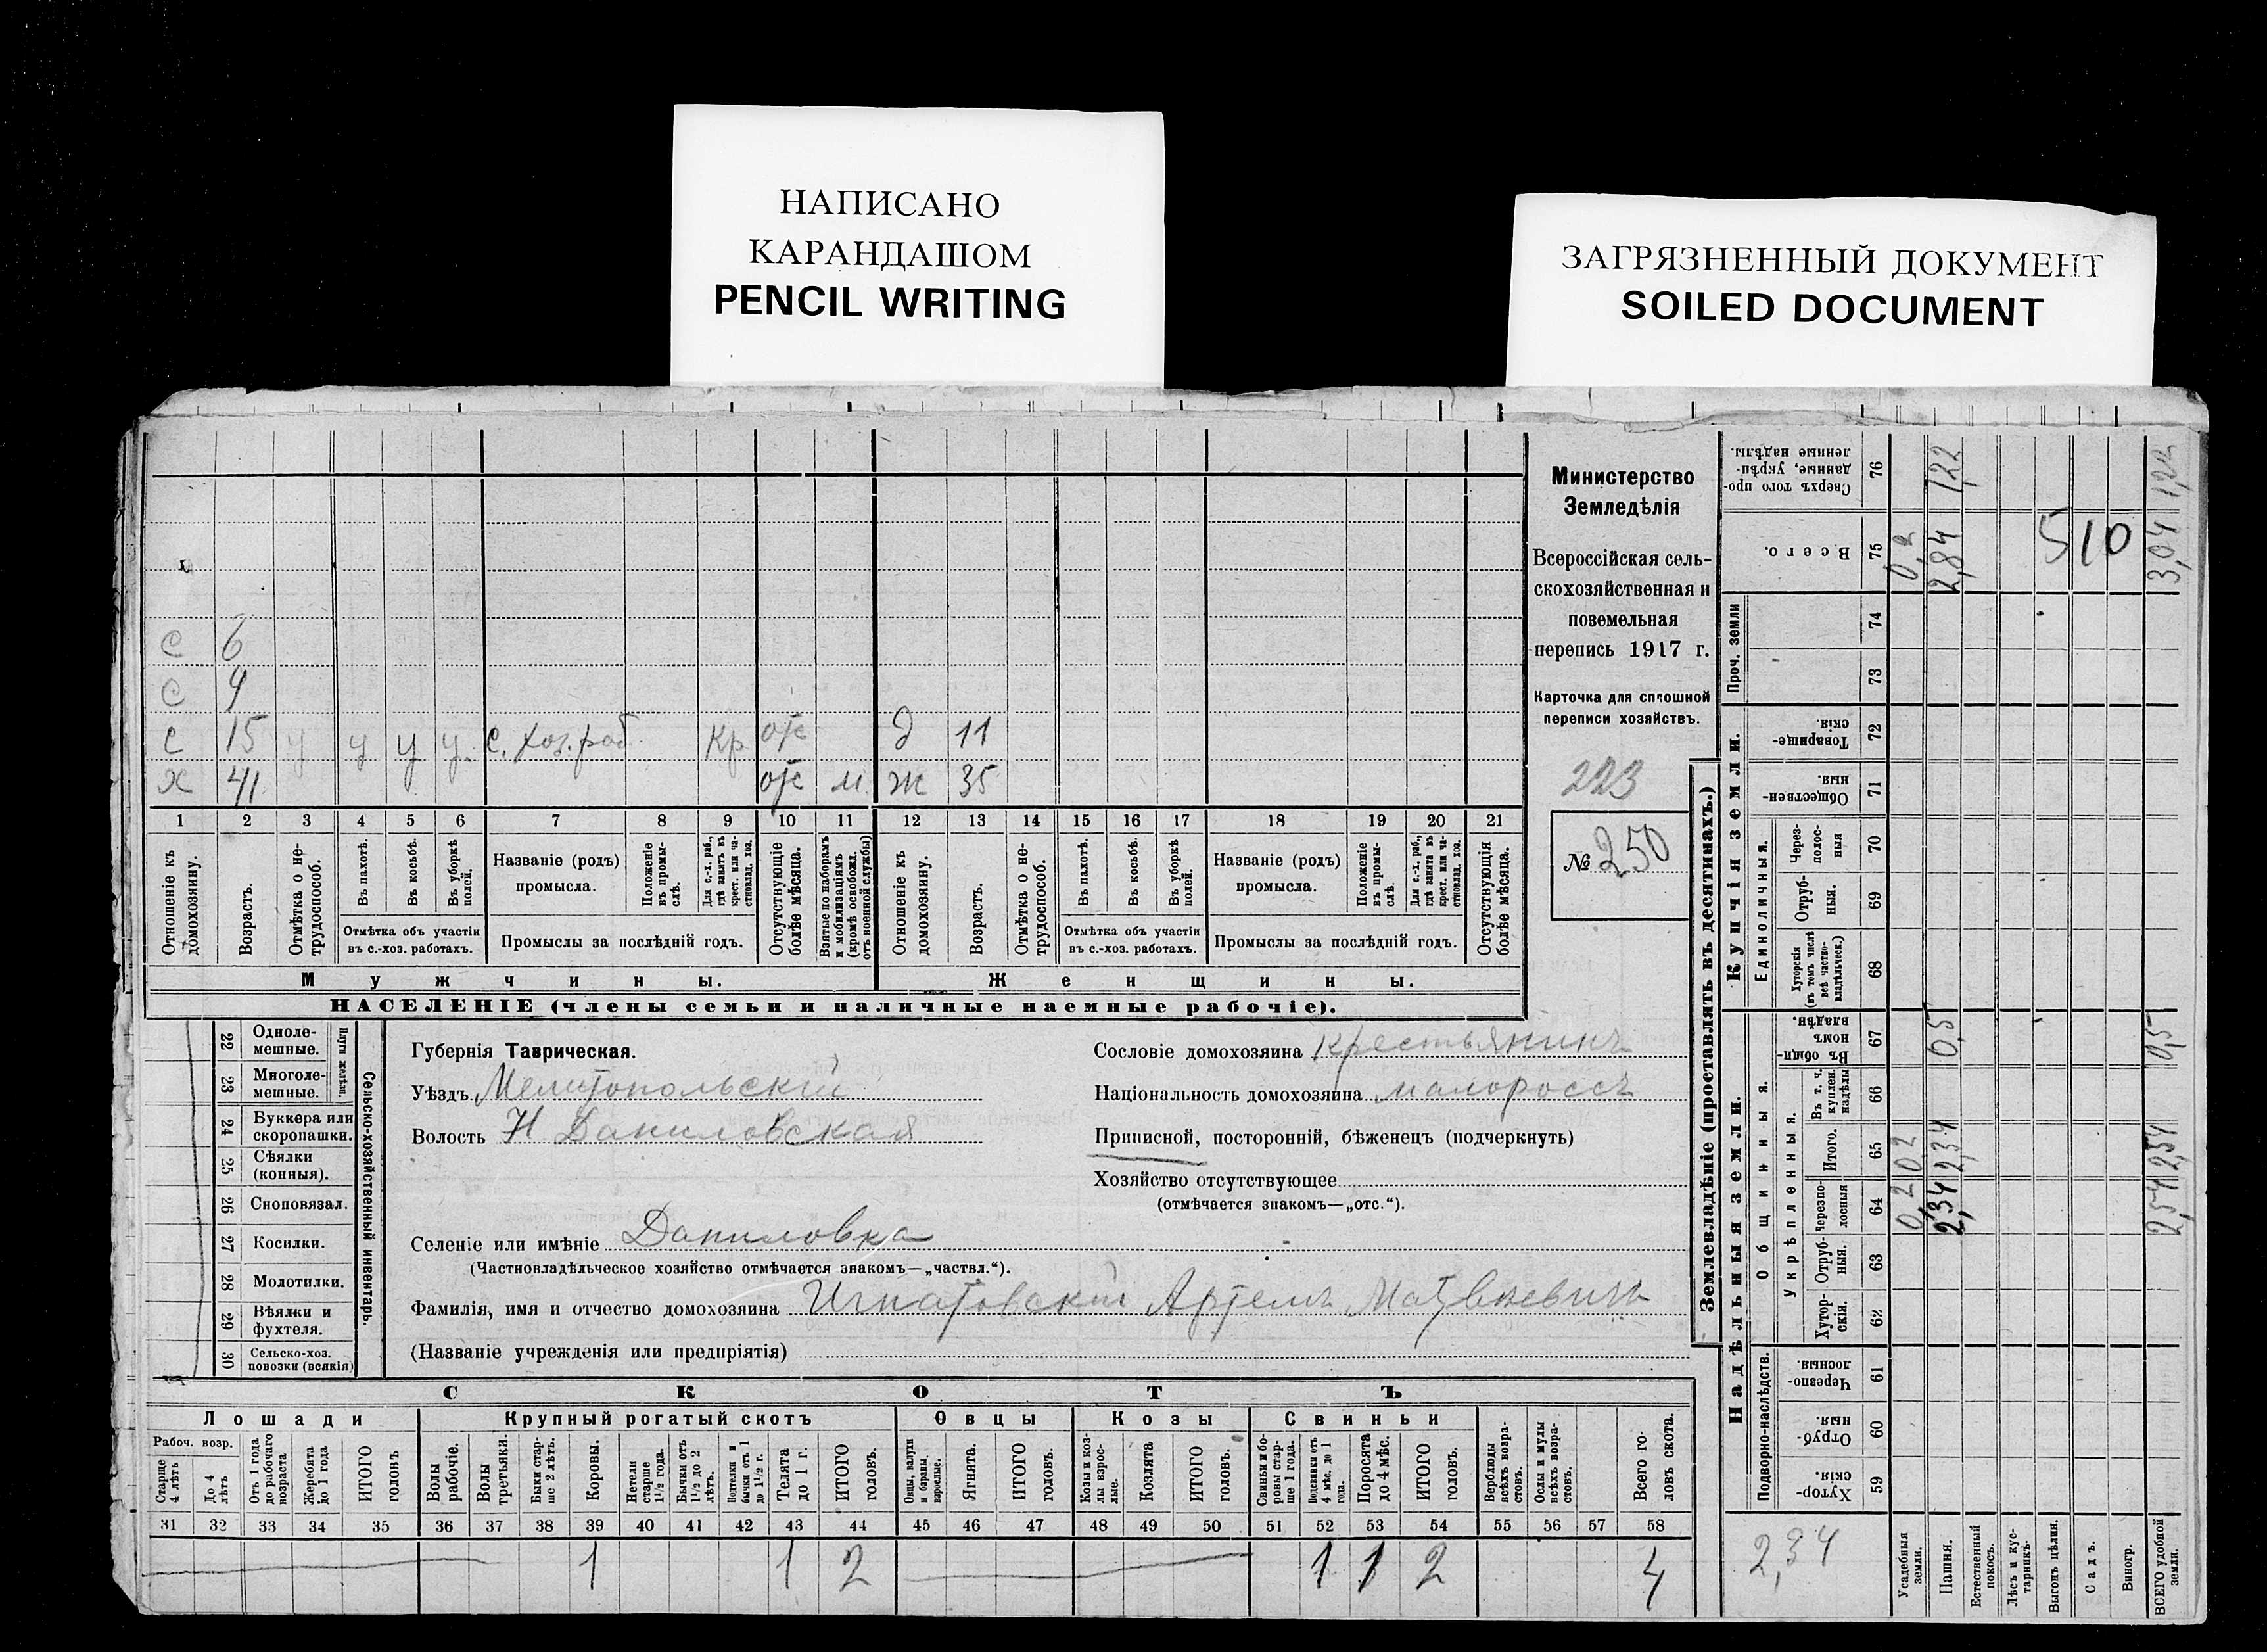 НАПИСАНО
КАРАНДАШОМ
PENCIL WRITING
ЗАГРЯЗНЕННЫЙ ДОКУМЕНТ
SOILED DOCUMENT
с 6
с 9
с 15 у у у у. с. хоз. раб. кр отс д 11
х 41 отс м ж 35
1 2 3 4 5 6 7 8 9 10 11 12 13 14 15 16 17 18 19 20 21
Отношеніе къ домохозяину.
Возрастъ.
Отмѣтка о нетрудоспособ.
Въ пахотѣ.
Въ косьбѣ.
Въ уборкѣ полей.
Отмѣтка объ участіи въ с.-хоз. работахъ.
Названіе (родъ) промысла.
Положеніе въ промыслѣ.
Для с.-х. раб., гдѣ занятъ въ крест. или частновлад. хоз.
Промыслы за послѣдній годъ.
Отсутствующіе болѣе мѣсяца.
Взятые по наборамъ и мобилизаціямъ (кромѣ освобожд. отъ военной службы)
Отношеніе къ домохозяину.
Возрастъ.
Отмѣтка о нетрудоспособ.
Въ пахотѣ.
Въ косьбѣ.
Въ уборкѣ полей.
Отмѣтка объ участіи въ с.-хоз. работахъ.
Названіе (родъ) промысла.
Положеніе въ промыслѣ.
Для с.-х. раб., гдѣ занята въ крест. или частновлад. хоз.
Промыслы за послѣдній годъ.
Отсутствующія болѣе мѣсяца.
Мужчины.
Женщины.
НАСЕЛЕНІЕ (члены семьи и наличные наемные рабочіе).
Министерство
Земледѣлія
Всероссійская сель-
скохозяйственная и
поземельная
перепись 1917 г.
Карточка для сплошной
переписи хозяйствъ.
223
№ 250
22 Одноле-мешные.
23 Многоле-мешные.
Плуги желѣзн.
24 Буккера или скоропашки.
25 Сѣялки (конныя).
26 Сноповязал.
27 Косилки.
28 Молотилки.
29 Вѣялки и фухтеля.
30 Сельско-хоз. повозки (всякія)
Сельско-хозяйственный инвентарь.
Губернія Таврическая.
Уѣздъ Мелитопольскій
Волость Н Даниловская
Селеніе или имѣніе Даниловка
(Частновладѣльческое хозяйство отмѣчается знакомъ—„частвл.“).
Фамилія, имя и отчество домохозяина Игнатовскій Артемъ Матвѣевичъ
(Названіе учрежденія или предпріятія)
Сословіе домохозяина крестьянинъ
Національность домохозяина малороссъ
Приписной, посторонній, бѣженецъ (подчеркнуть)
Хозяйство отсутствующее
(отмѣчается знакомъ—„отс.“).
СКОТЪ
Лошади
Крупный рогатый скотъ
Овцы
Козы
Свиньи
Рабоч. возр.
Старше 4 лѣтъ
До 4 лѣтъ
Отъ 1 года до рабочаго возраста
Жеребята до 1 года
ИТОГО головъ
Волы рабочіе.
Волы третьяки.
Быки старше 2 лѣтъ.
Коровы.
Нетели старше 1½ года.
Бычки отъ 1½ до 2 лѣтъ.
Подтелки и бычки отъ 1 до 1½ г.
Телята до 1 г.
ИТОГО головъ.
Овцы, валухи и бараны, взрослые.
Ягнята.
ИТОГО головъ.
Козы и козлы взрослые.
Козлята
ИТОГО головъ.
Свиньи и боровы старше 1 года.
Подсвинки отъ 4 мѣс. до 1 года.
Поросята до 4 мѣс.
ИТОГО головъ.
Верблюды всѣхъ возрастовъ.
Ослы и мулы всѣхъ возрастовъ.
Всего головъ скота.
31 32 33 34 35 36 37 38 39 40 41 42 43 44 45 46 47 48 49 50 51 52 53 54 55 56 57 58
1 1 2 1 1 2 4
Землевладѣніе (проставлять въ десятинахъ.)
Надѣльныя земли.
Купчія земли.
Проч. земли
Подворно-наслѣдств.
Общинныя.
Укрѣпленныя.
Единоличныя.
Хуторскія. 59
Отрубныя. 60
Черезполосныя. 61
Хуторскія. 62
Отрубныя. 63
Черезполосныя 64
Итого. 65
Въ т. ч. куплен. надѣлы 66
Въ общинномъ владѣн. 67
Хуторскія (въ томъ числѣ всѣ частновладѣльческ.) 68
Отрубныя. 69
Черезполосныя 70
Общественныя 71
Товарищескія. 72
73
74
Всего. 75
Сверхъ того проданные, укрѣпленные надѣлы. 76
2,34
Усадебныя земли. 0,2 0,2 0,2
Пашня. 2,34 2,34 0,5 2,84 1,22
Естественный покосъ.
Лѣсъ и кустарникъ.
Выгонъ цѣлин.
Садъ.
Виногр.
ВСЕГО удобной земли. 2,54 2,54 0,5 3,04 1,22
510